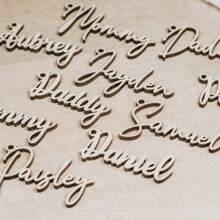 Mommy
Dad
Aubrey
Jayden
Daddy
Samuel
Daniel
Paisley